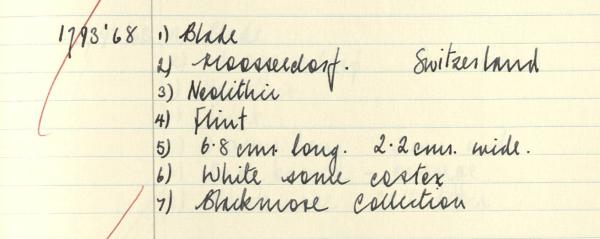 1793'68 1) Blade
2) Moosseedorf. Switzerland
3) Neolithic
4) Flint
5) 6.8 cms. long. 2.2 cms. wide.
6) White some cortex
7) Blackmore Collection